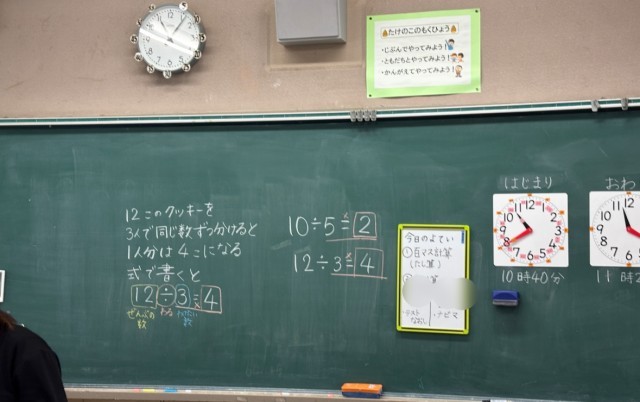 たけのこのもくひょう
・じぶんでやってみよう!
・ともだちとやってみよう!
・かんがえてやってみよう!
12このクッキーを
3人で同じ数ずつ分けると
1人分は4こになる
式で書くと
12÷3=4
ぜんぶの数 わる
10÷5=2
12÷3=4
今日のよてい
①百マス計算
(たし算)
算
・ナビマ
はじまり
10時40分
おわ
11時2